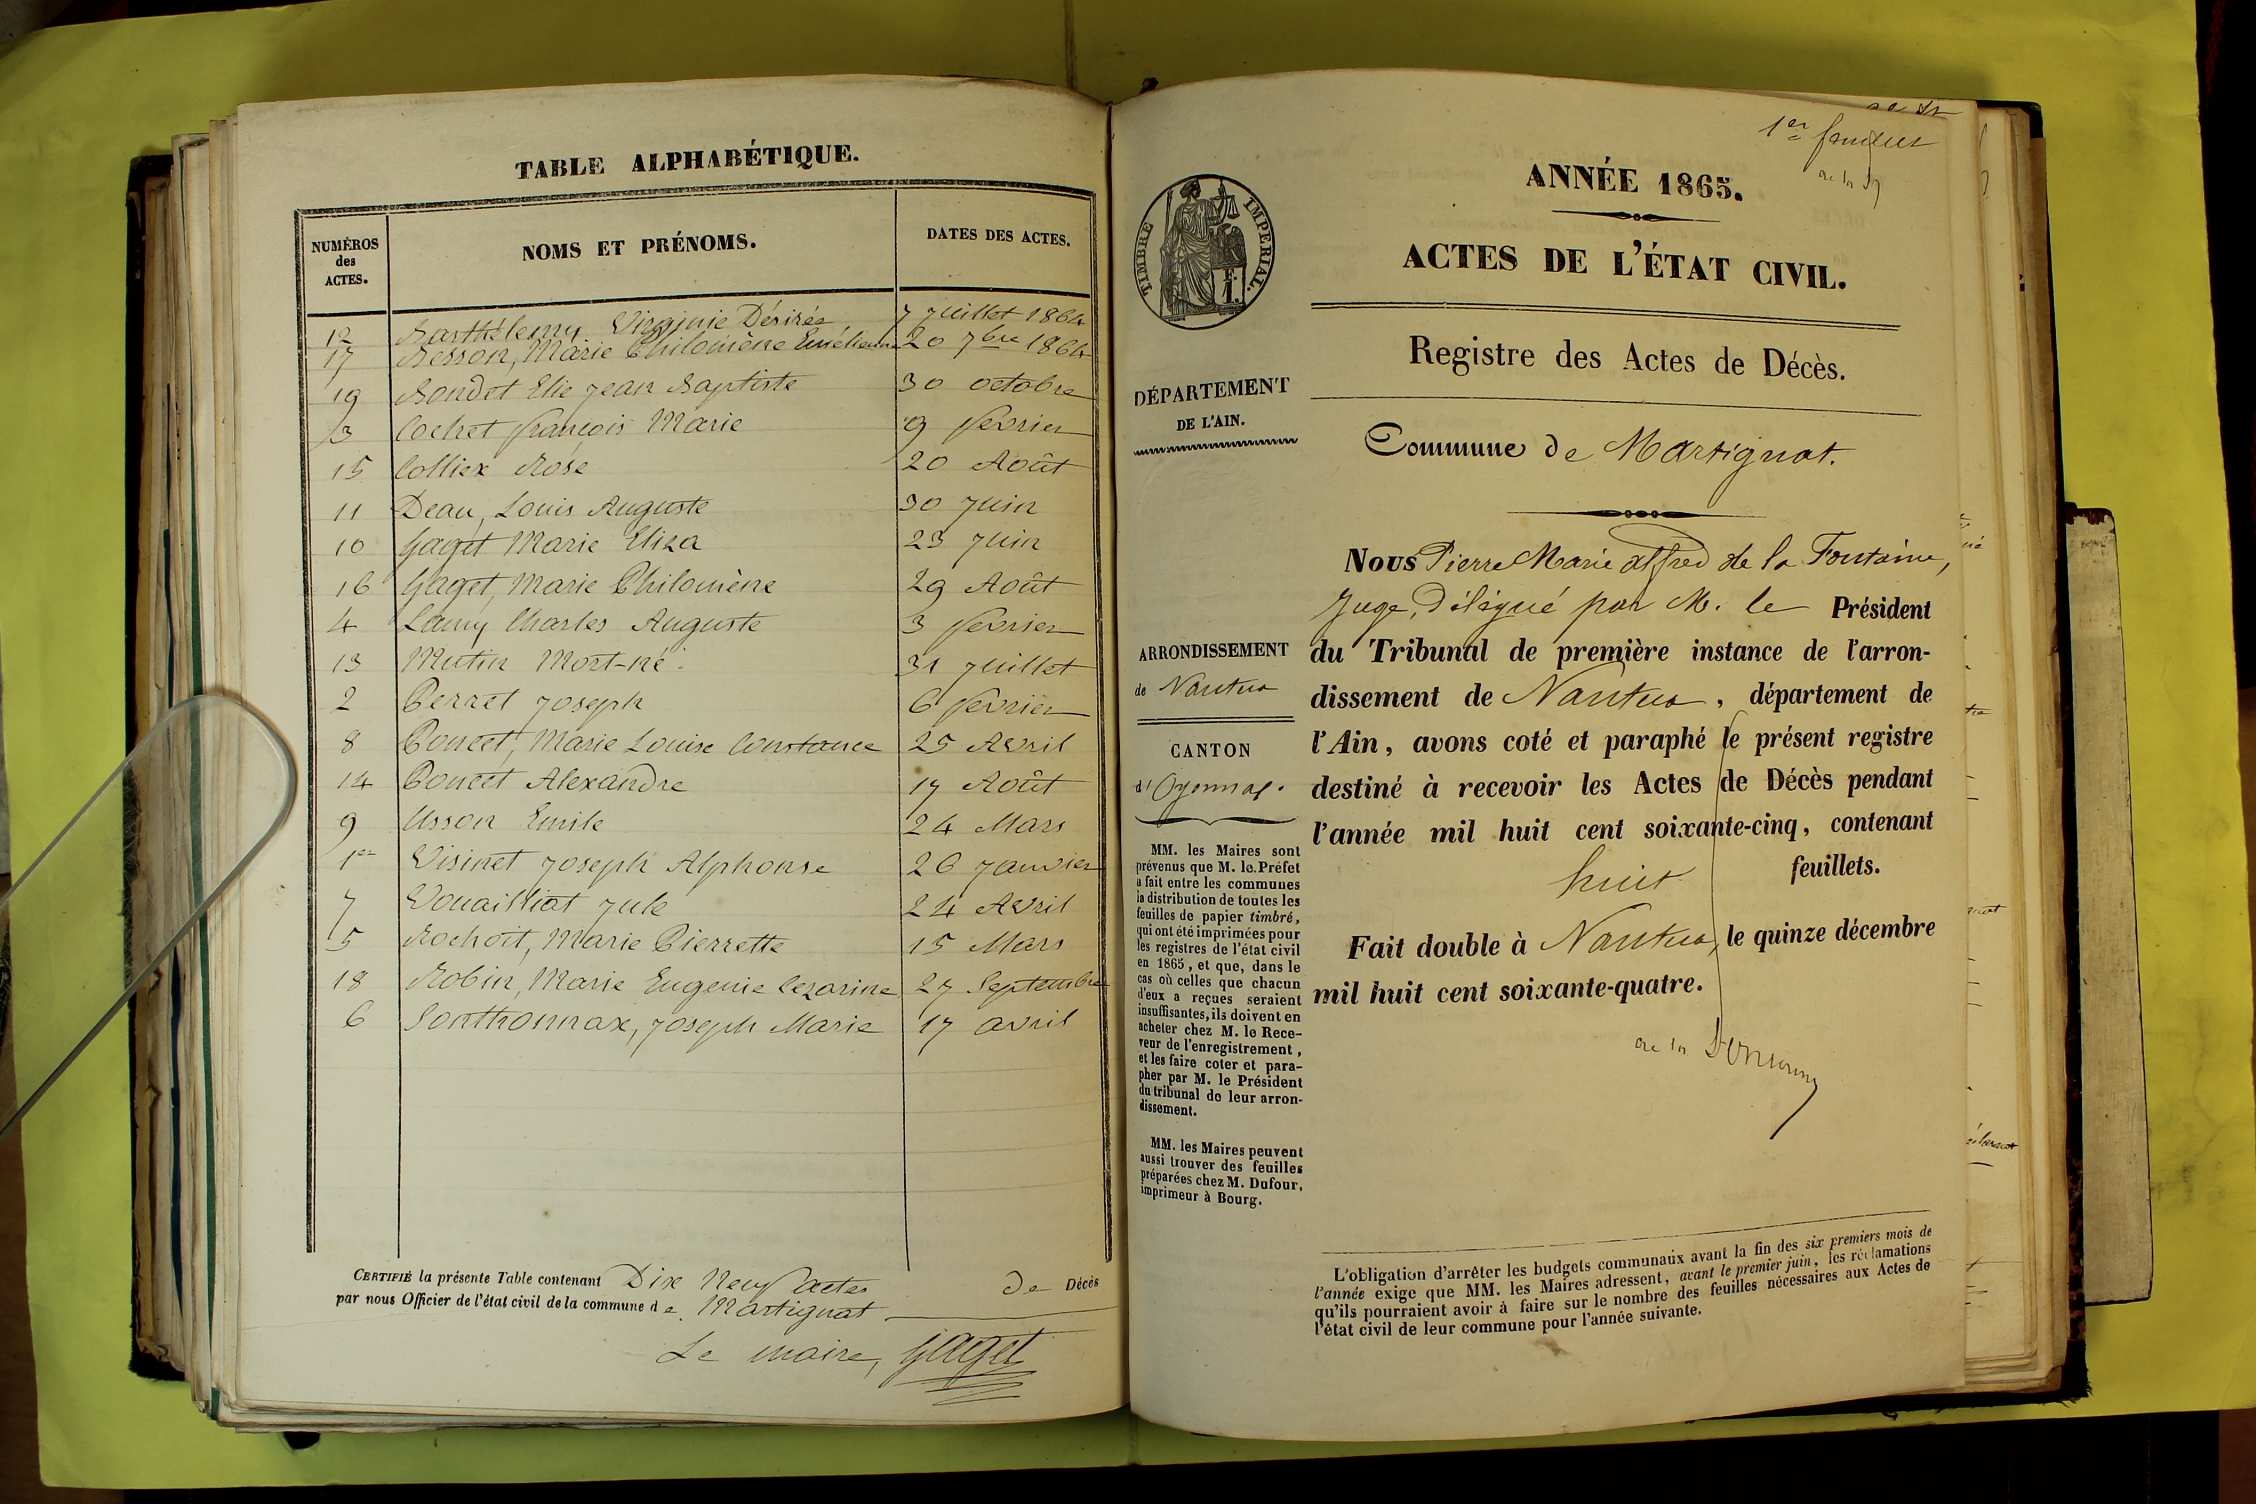 TABLE ALPHABÉTIQUE.
NUMÉROS
des
ACTES.
NOMS ET PRÉNOMS.
DATES DES ACTES.
12 Barthélemy Virginie Désirée 7 Juillet 1864
17 Besson, Marie Philomène Emélienne 20 7bre 1864
19 Bondet Elie Jean Baptiste 30 octobre
3 Cochet François Marie 9 février
15 Colliex Rose 20 Août
11 Deau, Louis Auguste 30 Juin
10 Gaget Marie Eliza 23 Juin
16 Gaget, Marie Philomène 29 Août
4 Lamy Charles Auguste 3 février
13 Mutin Mort-né. 31 Juillet
2 Perret Joseph 6 février
8 Poncet, Marie Louise Constance 25 Avril
14 Poncet Alexandre 17 Août
9 Usson Emile 24 Mars
1er Visinet Joseph Alphonse 26 Janvier
7 Vouailliat Jule 24 Avril
5 Rochoit, Marie Pierrette 15 Mars
18 Robin, Marie Eugenie Cezarine 27 Septembre
6 Sonthonnax, Joseph Marie 17 avril
CERTIFIÉ la présente Table contenant Dix Neuf actes de Décès
par nous Officier de l'état civil de la commune de Martignat
Le maire, Gaget
1er
ANNÉE 1865.
TIMBRE IMPERIAL.
ACTES DE L'ÉTAT CIVIL.
Registre des Actes de Décès.
DÉPARTEMENT
DE L'AIN.
Commune de Martignat.
Nous Pierre Marie alfred de la Fontaine,
Juge, Délégué par M. le Président
du Tribunal de première instance de l'arron-
dissement de Nantua, département de
l'Ain, avons coté et paraphé le présent registre
destiné à recevoir les Actes de Décès pendant
l'année mil huit cent soixante-cinq, contenant
huit feuillets.
Fait double à Nantua, le quinze décembre
mil huit cent soixante-quatre.
ARRONDISSEMENT
de Nantua
CANTON
d'Oyonnax.
MM. les Maires sont
prévenus que M. le Préfet
a fait entre les communes
la distribution de toutes les
feuilles de papier timbré,
qui ont été imprimées pour
les registres de l'état civil
en 1865, et que, dans le
cas où celles que chacun
d'eux a reçues seraient
insuffisantes, ils doivent en
acheter chez M. le Rece-
veur de l'enregistrement,
et les faire coter et para-
pher par M. le Président
du tribunal de leur arron-
dissement.
MM. les Maires peuvent
aussi trouver des feuilles
préparées chez M. Dufour,
imprimeur à Bourg.
L'obligation d'arrêter les budgets communaux avant la fin des six premiers mois de
l'année exige que MM. les Maires adressent, avant le premier juin, les réclamations
qu'ils pourraient avoir à faire sur le nombre des feuilles nécessaires aux Actes de
l'état civil de leur commune pour l'année suivante.